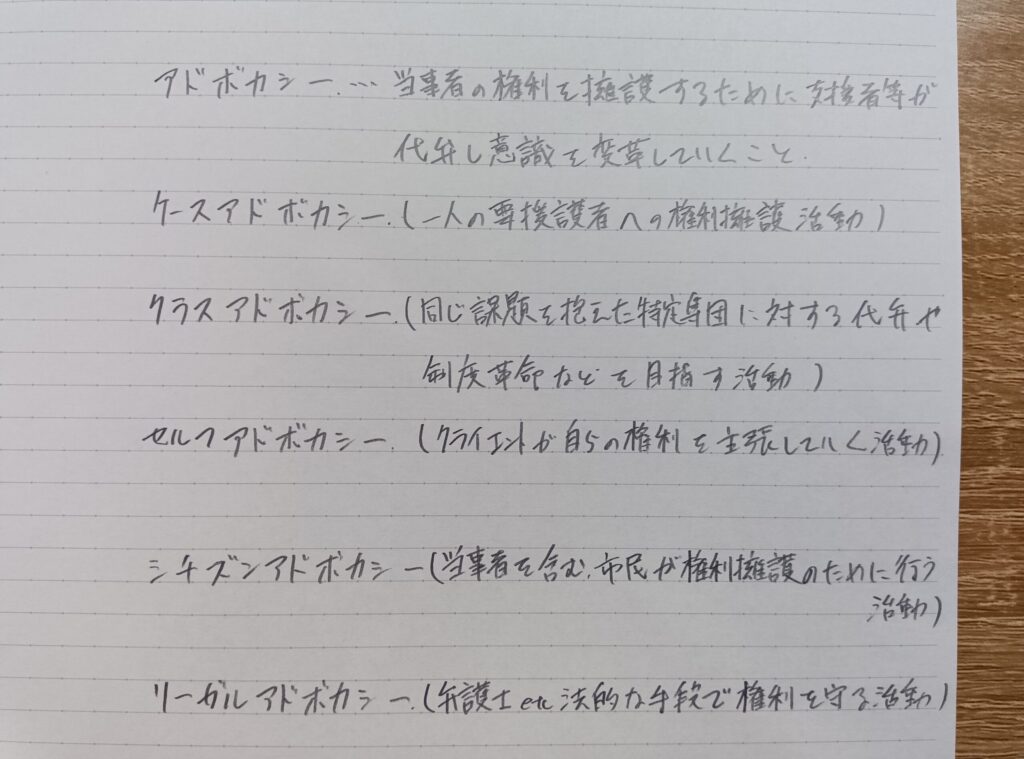 アドボカシー.… 当事者の権利を擁護するために支援者等が
代弁し意識を変革していくこと.
ケースアドボカシー.(一人の要援護者への権利擁護活動)
クラスアドボカシー.(同じ課題を抱えた特定集団に対する代弁や
制度革命などを目指す活動)
セルフアドボカシー. (クライエントが自らの権利を主張していく活動)
シチズンアドボカシー(当事者を含む.市民が権利擁護のために行う
活動)
リーガルアドボカシー.(弁護士etc法的な手段で権利を守る活動)